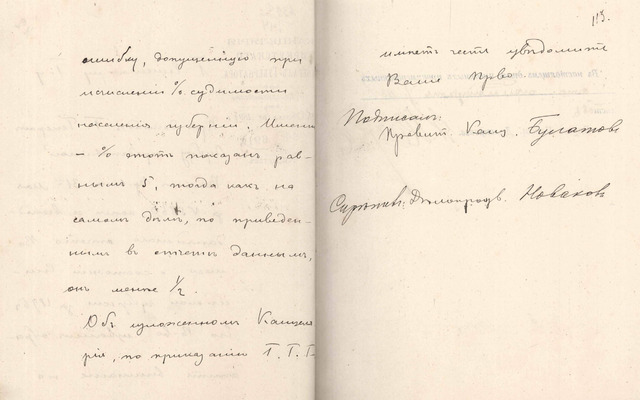 ошибку, допущенную при
исчисленіи % судимости
населенія губерніи. Именно
- % этотъ показанъ рав-
нымъ 5, тогда какъ, на
самомъ дѣлѣ, по приведен-
нымъ въ отчетѣ даннымъ,
онъ менѣе 1/2.
Объ изложенномъ Канцеля
рія, по приказанію Г. Г. Г-
113.
имѣетъ честь увѣдомить
Ваше Прево
Подписалъ:
Правит. Канц. Булатовъ
Скрѣпилъ: Дѣлопроизв. Новаковъ